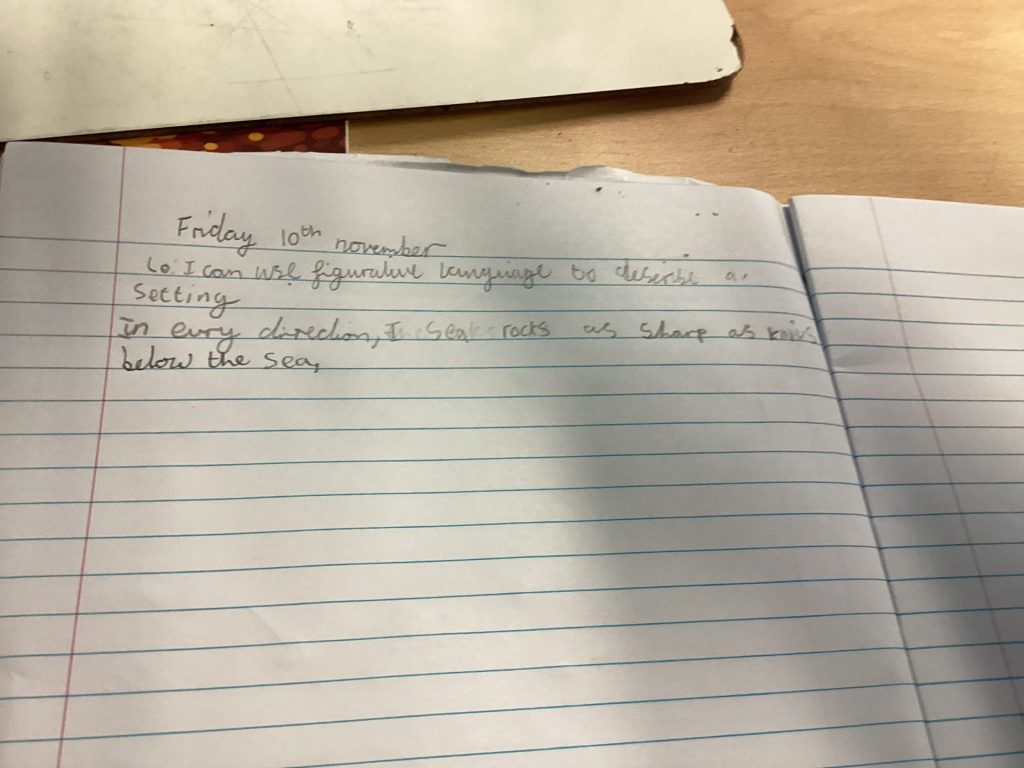 Friday 10th november
Lo: I can use figurative language to describe a.
Setting
In evry direction, I sea rocks as sharp as knivs
below the sea,